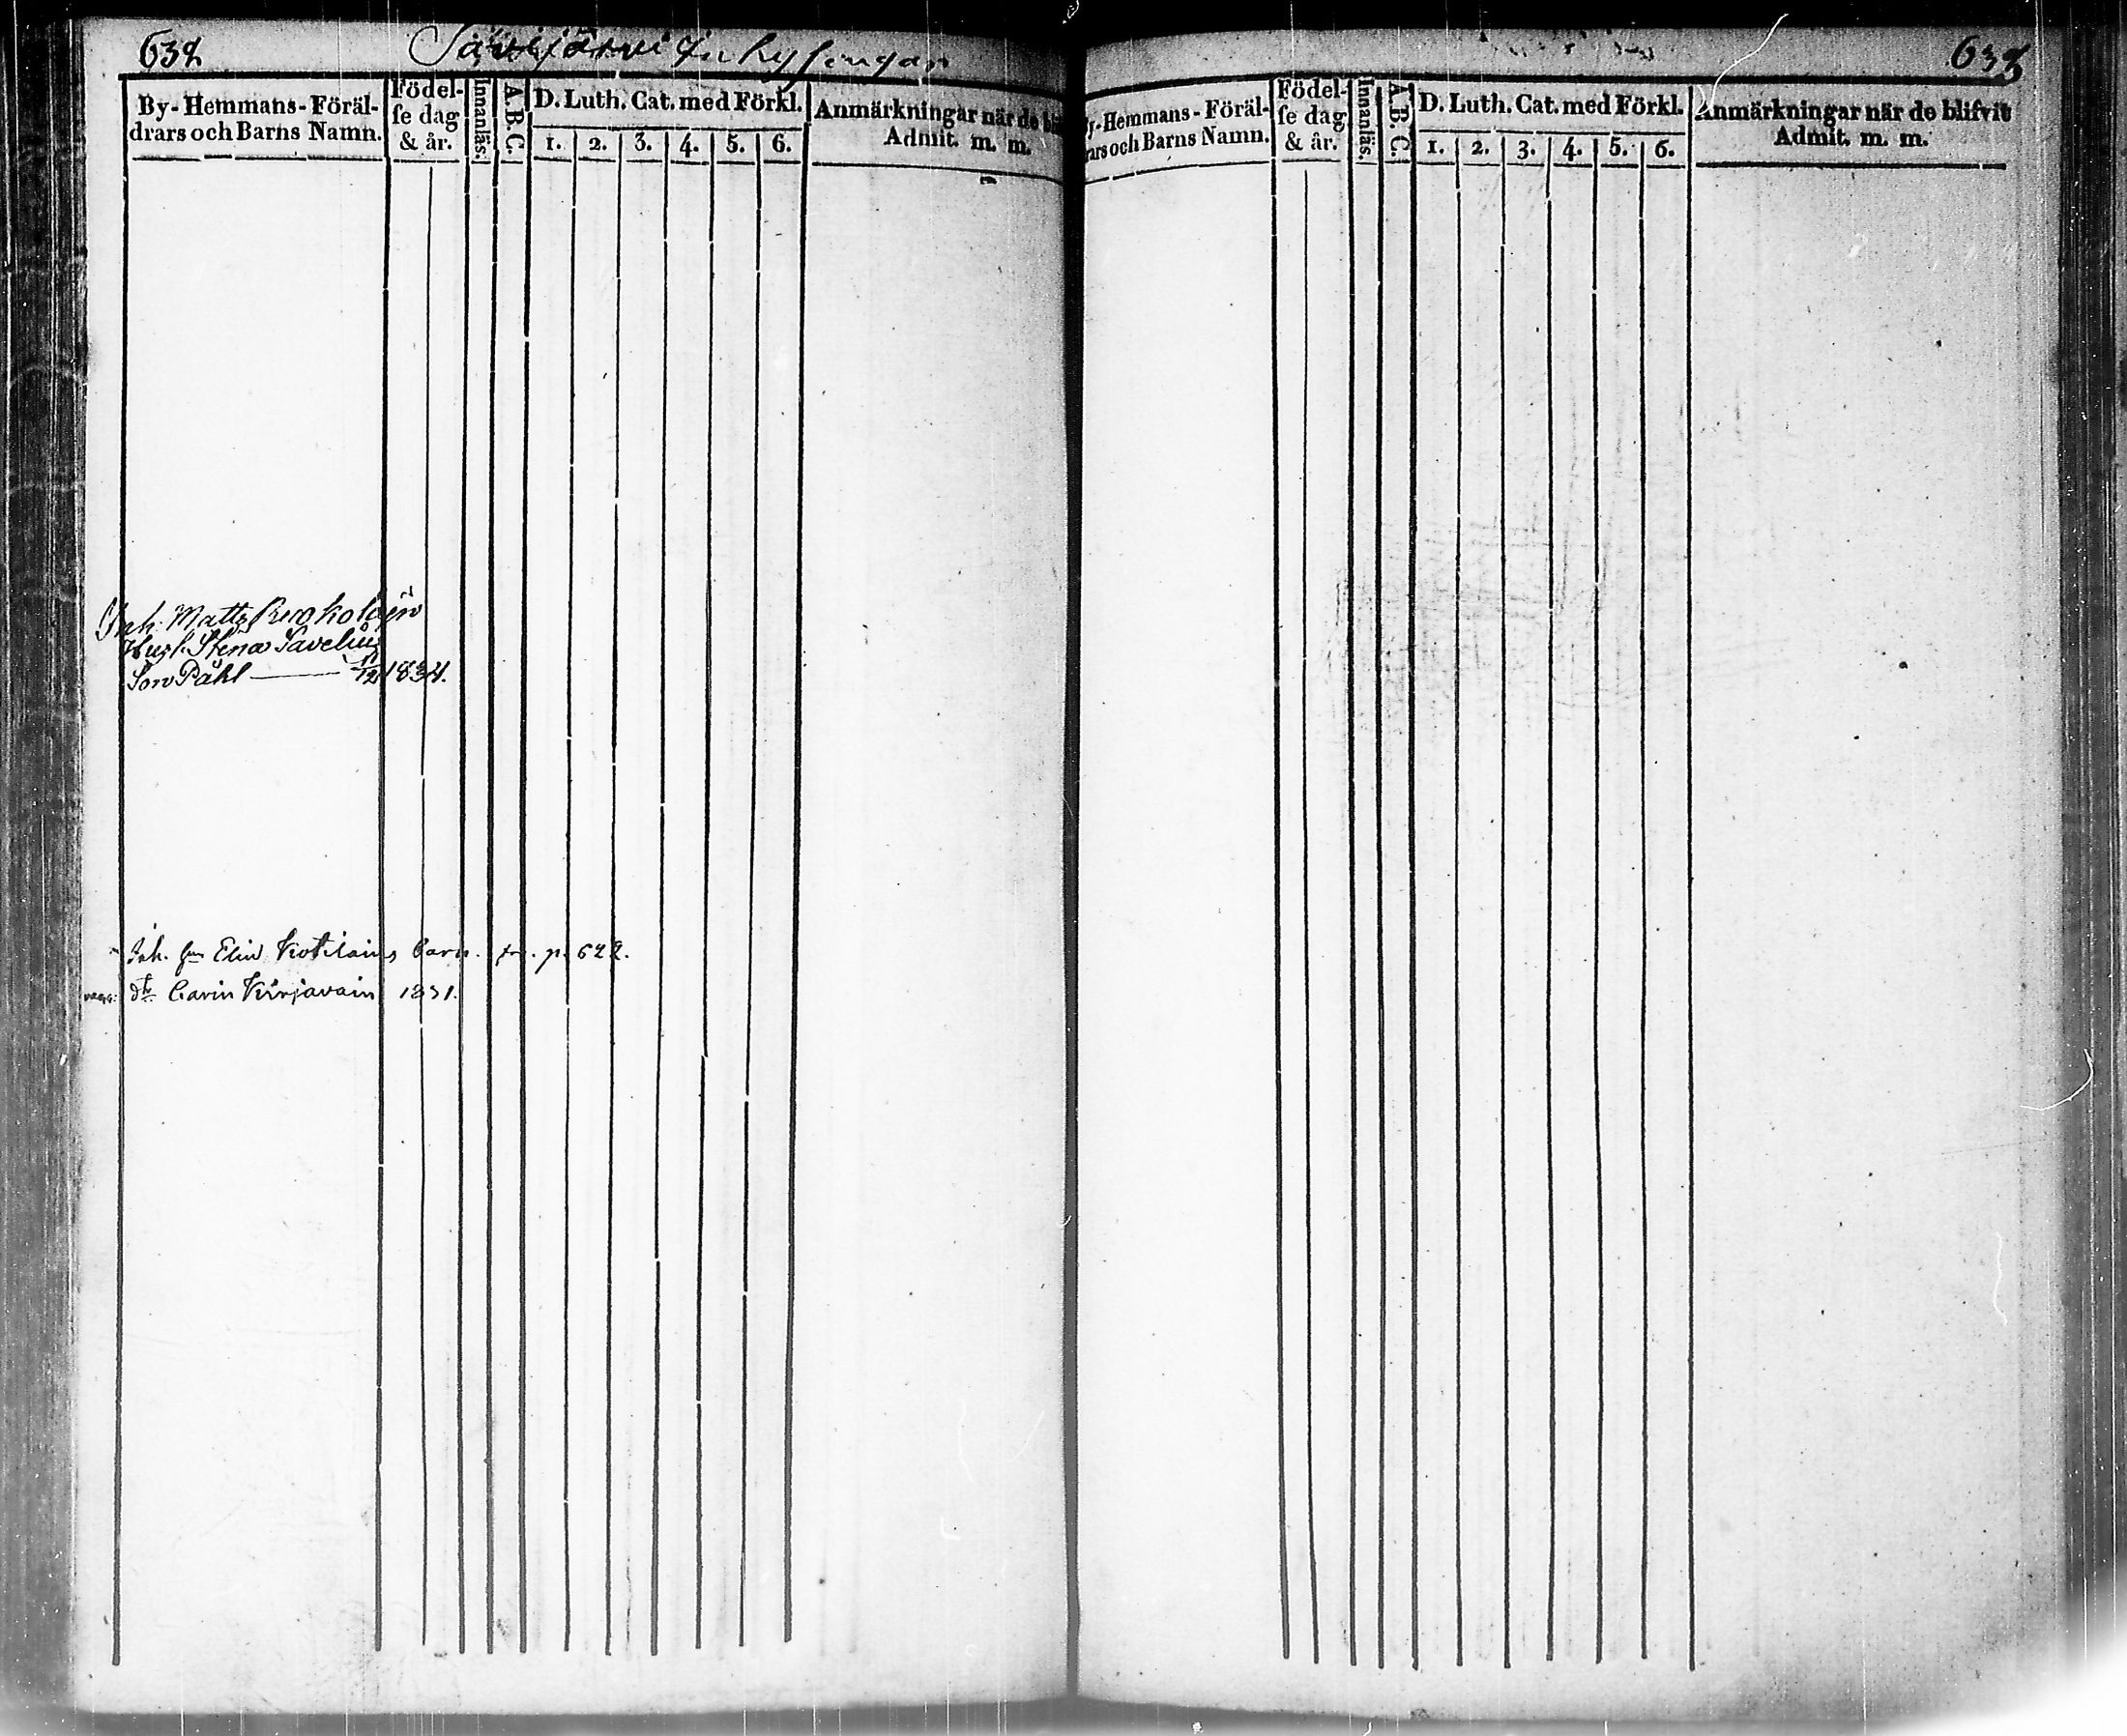 632
Särkijärvi Inhysingar
By-Hemmans-Föräl-
drars och Barns Namn.
Födel-
se dag
& år.
Innanläs.
A.B.C.
D. Luth. Cat. med Förkl.
1. 2. 3. 4. 5. 6.
Anmärkningar när de bli
Admit. m. m.
Inh. Matts
Hust. Stina Savelius
Son Påhl 11/12 1834.
Inh. Elin Kotilains barn. p. 622.
dtr Carin Kirjavain 1831.
633
y-Hemmans-Föräl-
rars och Barns Namn.
Födel-
se dag
& år.
Innanläs.
A.B.C.
D. Luth. Cat. med Förkl.
1. 2. 3. 4. 5. 6.
Anmärkningar när de blifvit
Admit. m. m.